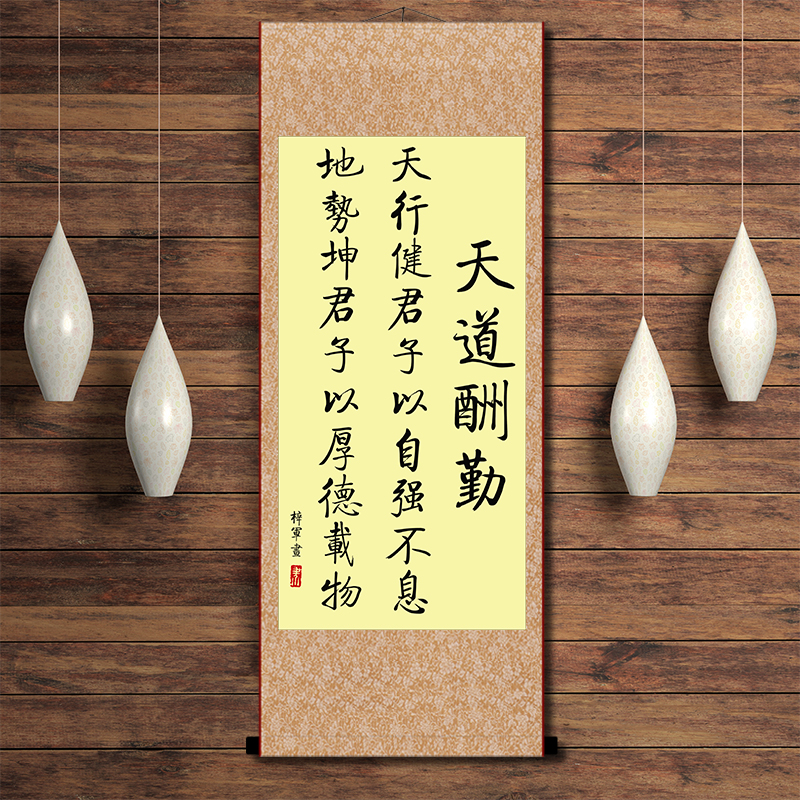 天道酬勤
天行健君子以自强不息
地勢坤君子以厚德載物
梓軍畫